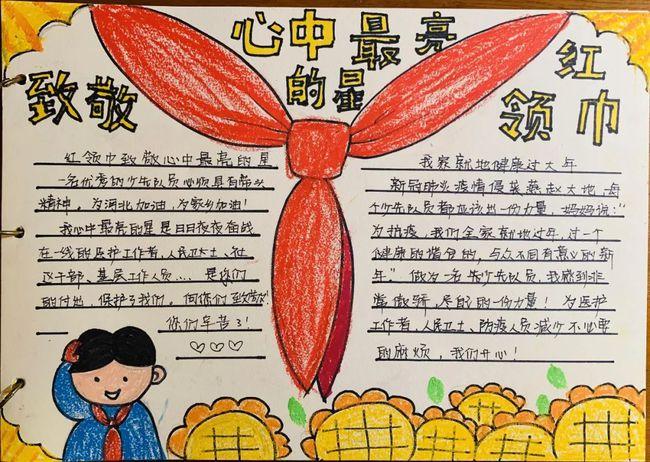 心中最亮
的星
致敬
红
领巾
红领巾致敬心中最亮的星
一名优秀的少先队员必须具有带头
精神。为河北加油,为家乡加油!
我心中最亮的星是日日夜夜奋战
在一线的医护工作者,人民卫士、社
区干部、基层工作人员……是你们
的付出,保护了我们。向你们致敬!
你们辛苦了!
我家就地健康过大年
新冠肺炎疫情侵袭燕赵大地,每
个少先队员都应该出一份力量,妈妈说:“
为抗疫,我们全家就地过年,过一个
健康的
与众不同有意义的新
年”做为一名
少先队员,我感到非
常傲骄,尽自己的一份力量!为医护
工作者,人民卫士、防疫人员减少不必要
的麻烦,我们开心!